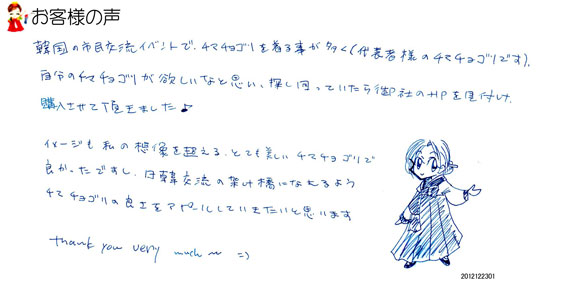 お客様の声
韓国の市民交流イベントで、チマチョゴリを着る事が多く(代表者様のチマチョゴリです)、
自分のチマチョゴリが欲しいなと思い、探し回っていたら御社のHPを見付け、
購入させて頂きました♪
イメージも私の想像を超える、とても美しいチマチョゴリで
良かったですし、日韓交流の架け橋になれるよう
チマチョゴリの良さをアピールしていきたいと思います
thank you very much〜 =)
2012122301